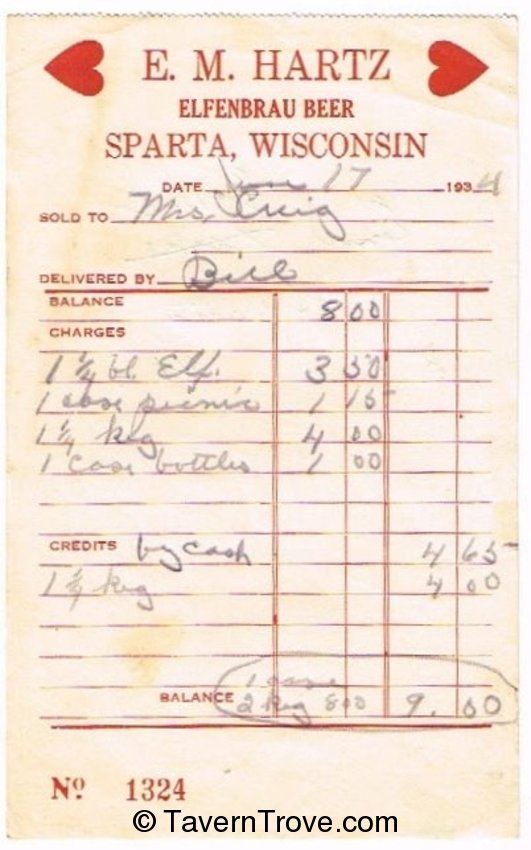 E. M. HARTZ
ELFENBRAU BEER
SPARTA, WISCONSIN
DATE June 17 1934
SOLD TO Mrs. Craig
DELIVERED BY Bill
BALANCE 8 00
CHARGES
1 1/4 bl. Elf. 3 50
1 case picnic 1 15
1 1/4 keg 4 00
1 case bottles 1 00
CREDITS by cash 4 65
1 1/4 keg 4 00
1 case
BALANCE 2 keg 8 00 9. 00
Nº 1324
© TavernTrove.com